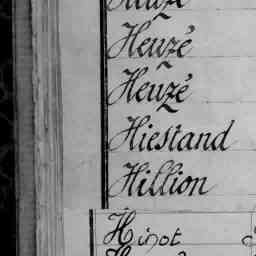 Heuzé
Heuzé
Heuzé
Hiestand
Hillion
Hinot